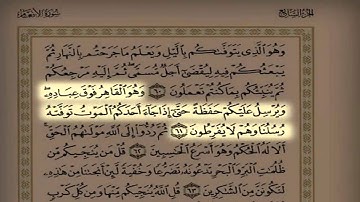 الجزء السابع سورة الأنعام
وَهُوَ الَّذِي يَتَوَفَّاكُم بِاللَّيْلِ وَيَعْلَمُ مَا جَرَحْتُم بِالنَّهَارِ ثُمَّ
يَبْعَثُكُمْ فِيهِ لِيُقْضَىٰ أَجَلٌ مُّسَمًّى ثُمَّ إِلَيْهِ مَرْجِعُكُمْ
ثُمَّ يُنَبِّئُكُم بِمَا كُنتُمْ تَعْمَلُونَ ٦٠ وَهُوَ الْقَاهِرُ فَوْقَ عِبَادِهِ
وَيُرْسِلُ عَلَيْكُمْ حَفَظَةً حَتَّىٰ إِذَا جَاءَ أَحَدَكُمُ الْمَوْتُ تَوَفَّتْهُ
رُسُلُنَا وَهُمْ لَا يُفَرِّطُونَ ٦١ ثُمَّ رُدُّوا إِلَى اللَّهِ مَوْلَاهُمُ الْحَقِّ
أَلَا لَهُ الْحُكْمُ وَهُوَ أَسْرَعُ الْحَاسِبِينَ ٦٢ قُلْ مَن يُنَجِّيكُم مِّن
ظُلُمَاتِ الْبَرِّ وَالْبَحْرِ تَدْعُونَهُ تَضَرُّعًا وَخُفْيَةً لَّئِنْ أَنجَانَا مِنْ هَٰذِهِ
لَنَكُونَنَّ مِنَ الشَّاكِرِينَ ٦٣ قُلِ اللَّهُ يُنَجِّيكُم مِّنْهَا وَمِن كُلِّ كَرْبٍ